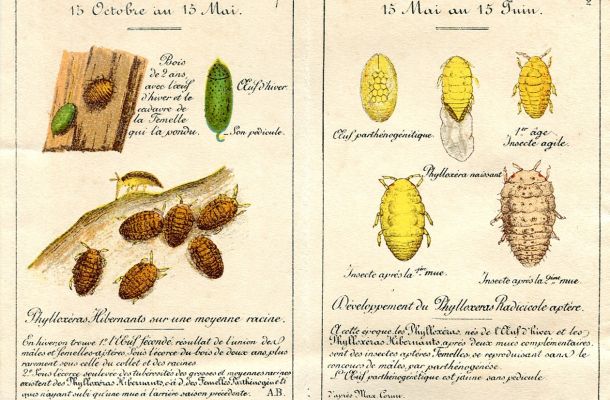 15 Octobre au 15 Mai.
Bois
de 2 ans,
avec l'œuf
d'hiver et le
cadavre de
la Femelle
qui l'a pondu.
Œuf d'hiver
Son pédicule.
Phylloxéras Hibernants sur une moyenne racine.
En hiver on trouve 1º l'Œuf fécondé, résultat de l'union des
mâles et femelles aptères. Sous l'écorce du bois de deux ans, plus
rarement sous celle du collet et des racines
2º Sous l'écorce soulevée des tubérosités des grosses et moyennes racines
existent des Phylloxéras Hibernants, c.à.d. des Femelles Parthénogén
ques n'ayant subi qu'une mue à l'arrière saison précédente. A.B.
2
15 Mai au 15 Juin.
Œuf parthénogénitique.
1er âge
Insecte agile.
Phylloxéra naissant
Insecte après la 1ère mue.
Insecte après la 3ème mue.
Développement du Phylloxéras Radicicole aptère.
A cette époque les Phylloxéras, nés de l'Œuf d'hiver et les
Phylloxéras Hibernants après deux mues complémentaires
sont des insectes aptères Femelles, se reproduisant sans le
concours de mâles par parthénogénèse.
L'Œuf parthénogénitique est jaune sans pédicule
d'après Max. Cornu.